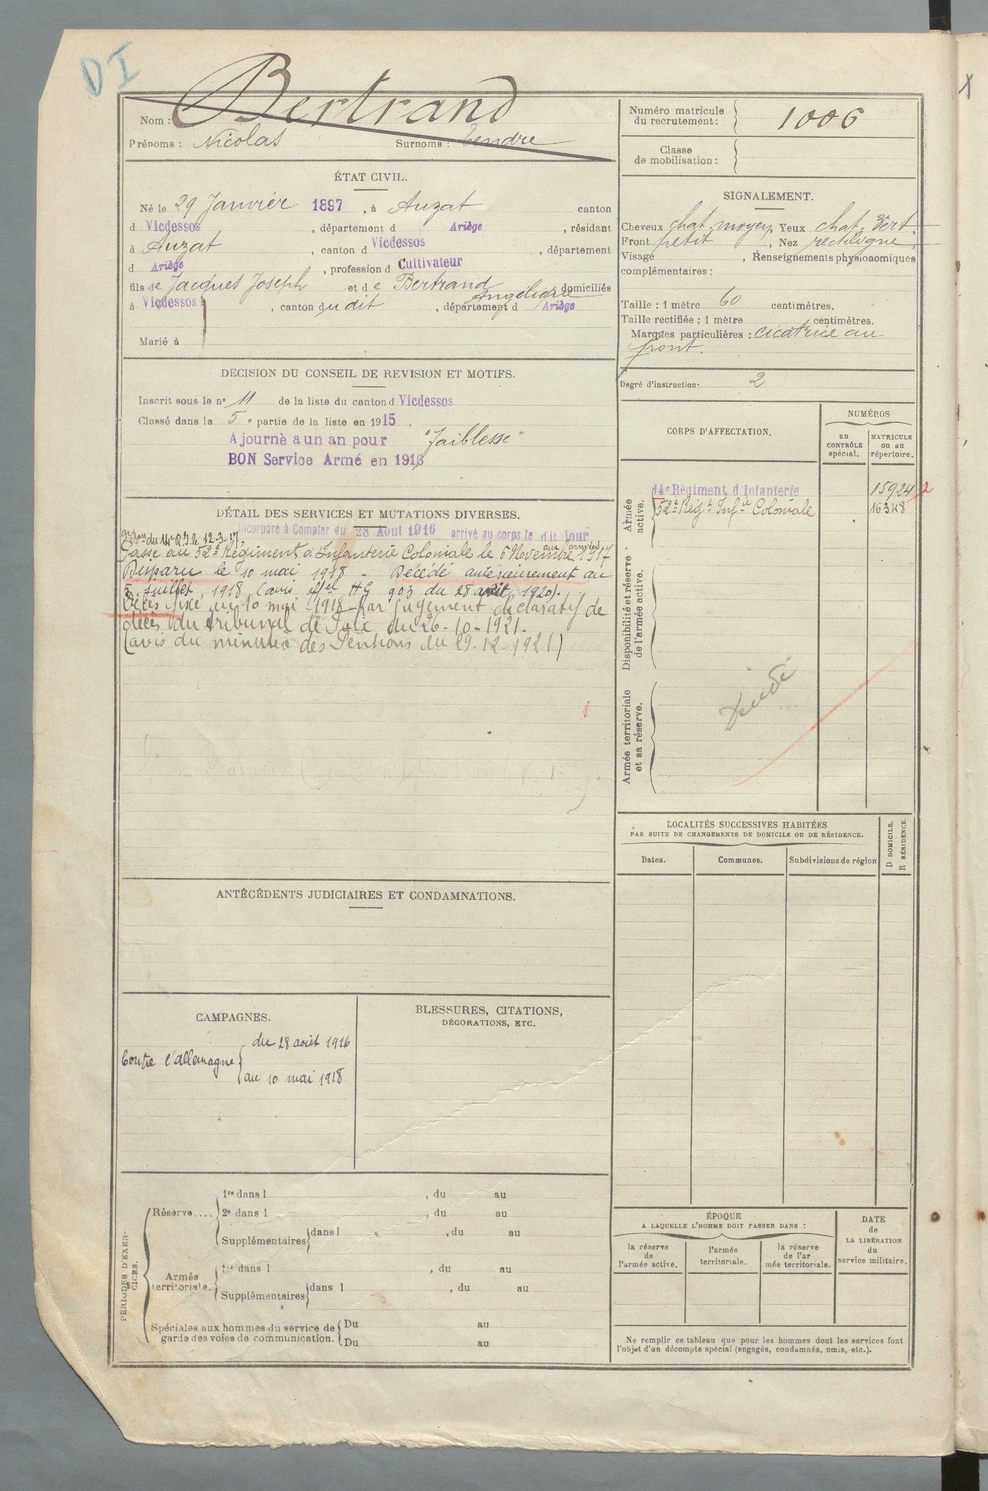 DI
Bertrand
Nom :
Prénoms : Nicolas Surnoms : Tendre
Numéro matricule
du recrutement : 1006
Classe
de mobilisation :
ÉTAT CIVIL.
Né le 29 Janvier 1897, à Auzat canton
d Vicdessos, département d Ariège, résidant
à Auzat, canton d Vicdessos, département
d Ariège, profession d Cultivateur
fils de Jacques Joseph et de Bertrand Angélique domiciliés
à Vicdessos, canton du dit, département d Ariège
Marié à
SIGNALEMENT.
Cheveux chat. moyen, Yeux chat. vert.
Front petit, Nez rectiligne.
Visage , Renseignements physionomiques
complémentaires :
Taille : 1 mètre 60 centimètres.
Taille rectifiée : 1 mètre centimètres.
Marques particulières : cicatrice au
front.
Degré d'instruction : 2
DÉCISION DU CONSEIL DE REVISION ET MOTIFS.
Inscrit sous le n° 11 de la liste du canton d Vicdessos
Classé dans la 5e partie de la liste en 1915.
Ajourné a un an pour "faiblesse"
BON Service Armé en 1916
CORPS D'AFFECTATION.
NUMÉROS
au
CONTRÔLE
spécial.
MATRICULE
ou au
répertoire.
Armée
active.
14e Régiment d'Infanterie 15924 2
52e Régt Infie Coloniale 16348
Disponibilité et réserve
de l'armée active.
Armée territoriale
et sa réserve.
DÉTAIL DES SERVICES ET MUTATIONS DIVERSES.
Incorporé à Compter du 28 Aout 1916 arrivé au corps le dit jour
du 14e R.I. le 12-3-17. aux armées
Passé au 52e Régiment d'Infanterie Coloniale le 6 Novembre 1917
Disparu le 10 mai 1918 - Décédé antérieurement au
5 Juillet 1918 (avis HG 903 du 28 août 1920).
Décès fixé au 10 mai 1918 par jugement déclaratif de
décès du tribunal de Foix du 26-10-1921.
(avis du ministre des Pensions du 29-12-1921)
LOCALITÉS SUCCESSIVES HABITÉES
PAR SUITE DE CHANGEMENTS DE DOMICILE OU DE RÉSIDENCE.
Dates. Communes. Subdivisions de région
D DOMICILE.
R RÉSIDENCE.
ANTÉCÉDENTS JUDICIAIRES ET CONDAMNATIONS.
CAMPAGNES.
Contre l'allemagne
du 28 août 1916
au 10 mai 1918
BLESSURES, CITATIONS,
DÉCORATIONS, ETC.
PÉRIODES D'EXER-
CICES.
Réserve....
1re dans l , du au
2e dans l , du au
Supplémentaires dans l , du au
Armée
territoriale.
1re dans l , du au
Supplémentaires dans l , du au
Spéciales aux hommes du service de
garde des voies de communication.
Du au
Du au
ÉPOQUE
A LAQUELLE L'HOMME DOIT PASSER DANS :
la réserve
de
l'armée active.
l'armée
territoriale.
la réserve
de l'ar
mée territoriale.
DATE
de
LA LIBÉRATION
du
service militaire.
Ne remplir ce tableau que pour les hommes dont les services font
l'objet d'un décompte spécial (engagés, condamnés, omis, etc.).